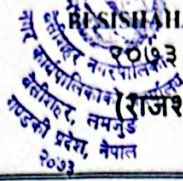 BESISHAH
२०७३
बेसीशहर नगरपालिका
नगर कार्यपालिकाको कार्यालय
बेसीशहर, लमजुङ
गण्डकी प्रदेश, नेपाल
२०७३
(राजश